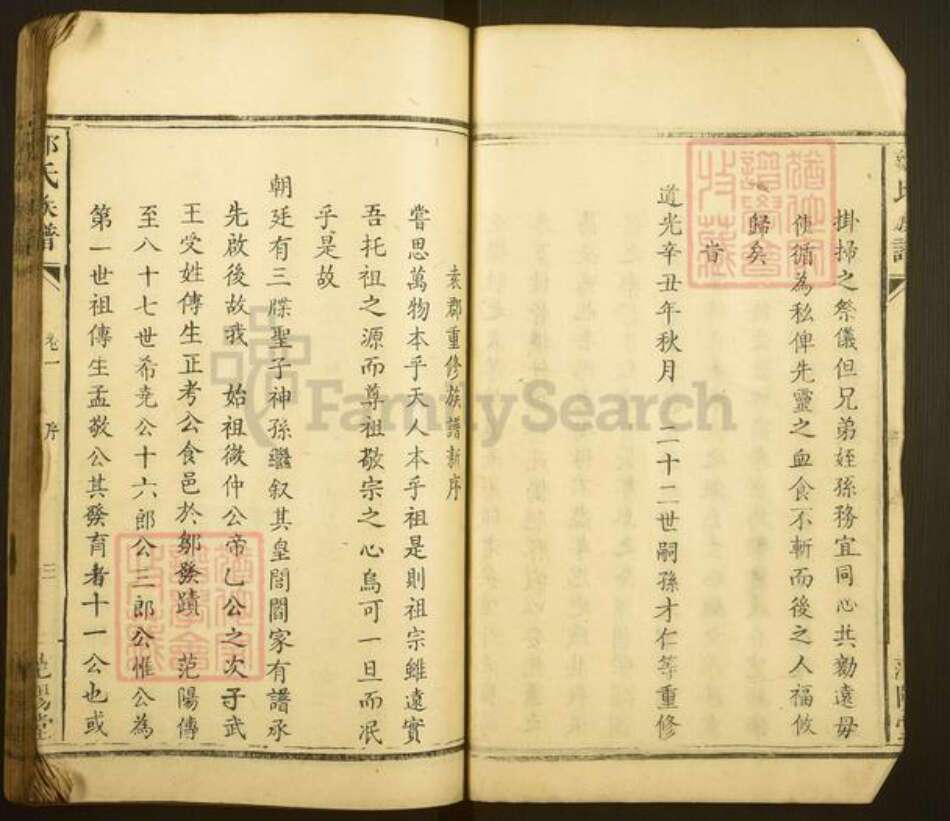 掛掃之祭儀但兄弟姪孫務宜同心共勷遠毋
使循為私俾先靈之血食不斬而後之人福攸
歸矣
旹
道光辛丑年秋月 二十二世嗣孫才仁等重修
袁郡重修族譜新序
嘗思萬物本乎天人本乎祖是則祖宗雖遠實
吾托祖之源而尊祖敬宗之心烏可一旦而泯
乎是故
朝廷有三牒聖子神孫繼叙其皇閭閻家有譜承
先啟後故我 始祖微仲公帝乙公之次子武
王受姓傳生正考公食邑於鄒發蹟 范陽傳
至八十七世希堯公十六郎公三郎公惟公為
第一世祖傳生孟敬公其發育者十一公也或
鄒氏族譜 卷一 序 三 范陽堂
FamilySearch